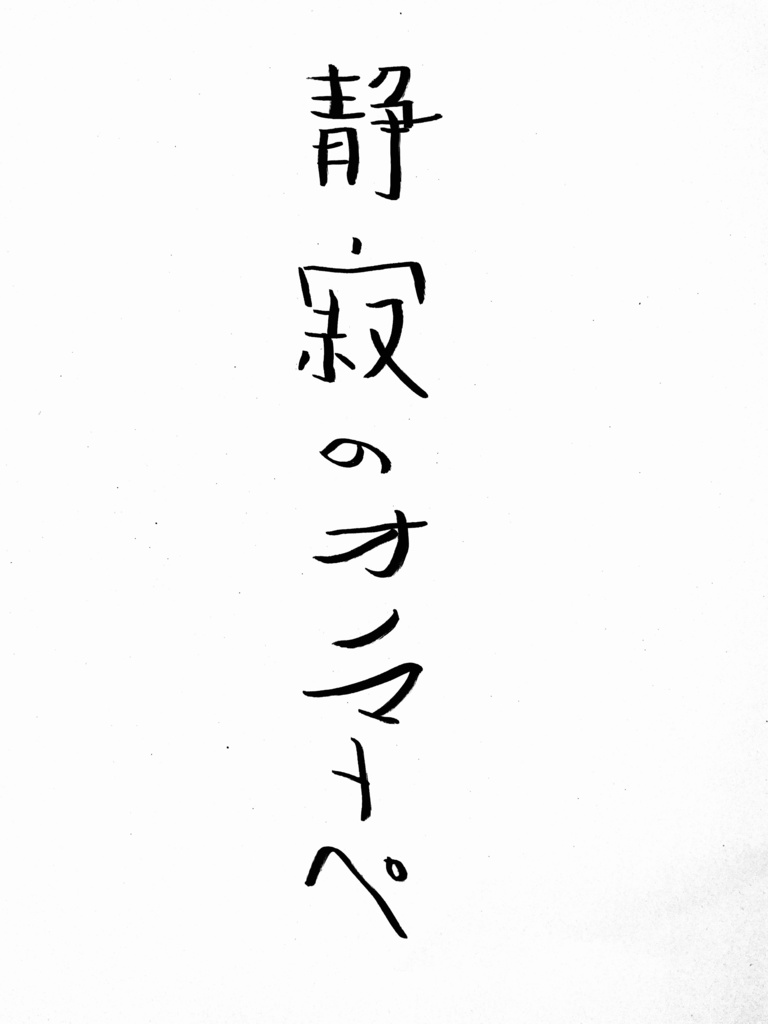 静寂のオノマトペ